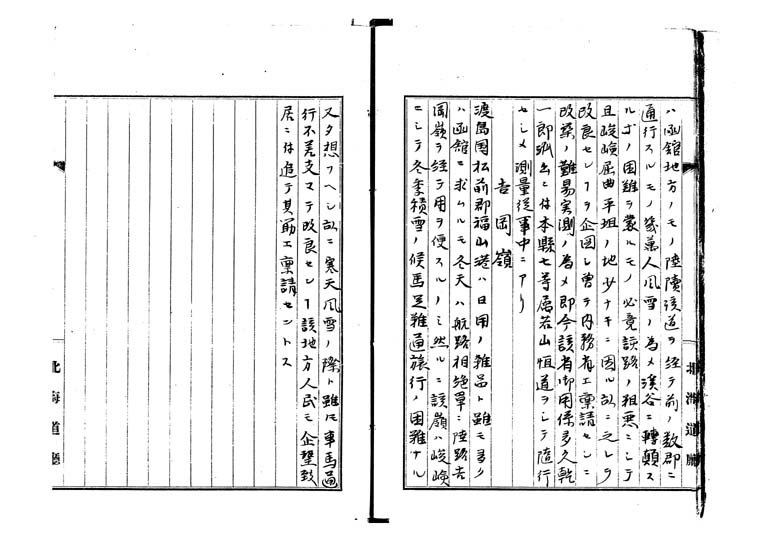 ハ函館地方ノモノ陸続該道ヲ経テ前ノ数郡ニ
通行スルモノ幾萬人風雪ノ為メ溪谷ニ轉顛ス
ルホノ困難ヲ蒙ルモノ必竟該路ノ粗悪ニシテ
且峻嶮屈曲平坦ノ地少ナキニ因ル故ニ之レヲ
改良センヿヲ企圖シ曽テ内務省エ稟請セシニ
改築ノ難易実測ノ為メ即今該省御用係多久乾
一郎派出ニ付本縣七等属若山恒道ヲシテ随行
セシメ測量従事中ニアリ
吉岡嶺
渡島国松前郡福山港ハ日用ノ雑品ト雖モ多ク
ハ函館ニ求ムルモ冬天ハ航路相絶單ニ陸路吉
岡嶺ヲ経テ用ヲ便スルノミ然ルニ該嶺ハ峻嶮
ニシテ冬季積雪ノ候馬足難通旅行ノ困難ナル
北海道廳
又タ想フヘシ故ニ寒天風雪ノ際ト雖モ車馬通
行不差支マテ改良センヿ該地方人民モ企望致
居ニ付追テ其筋エ稟請セントス
北海道廳